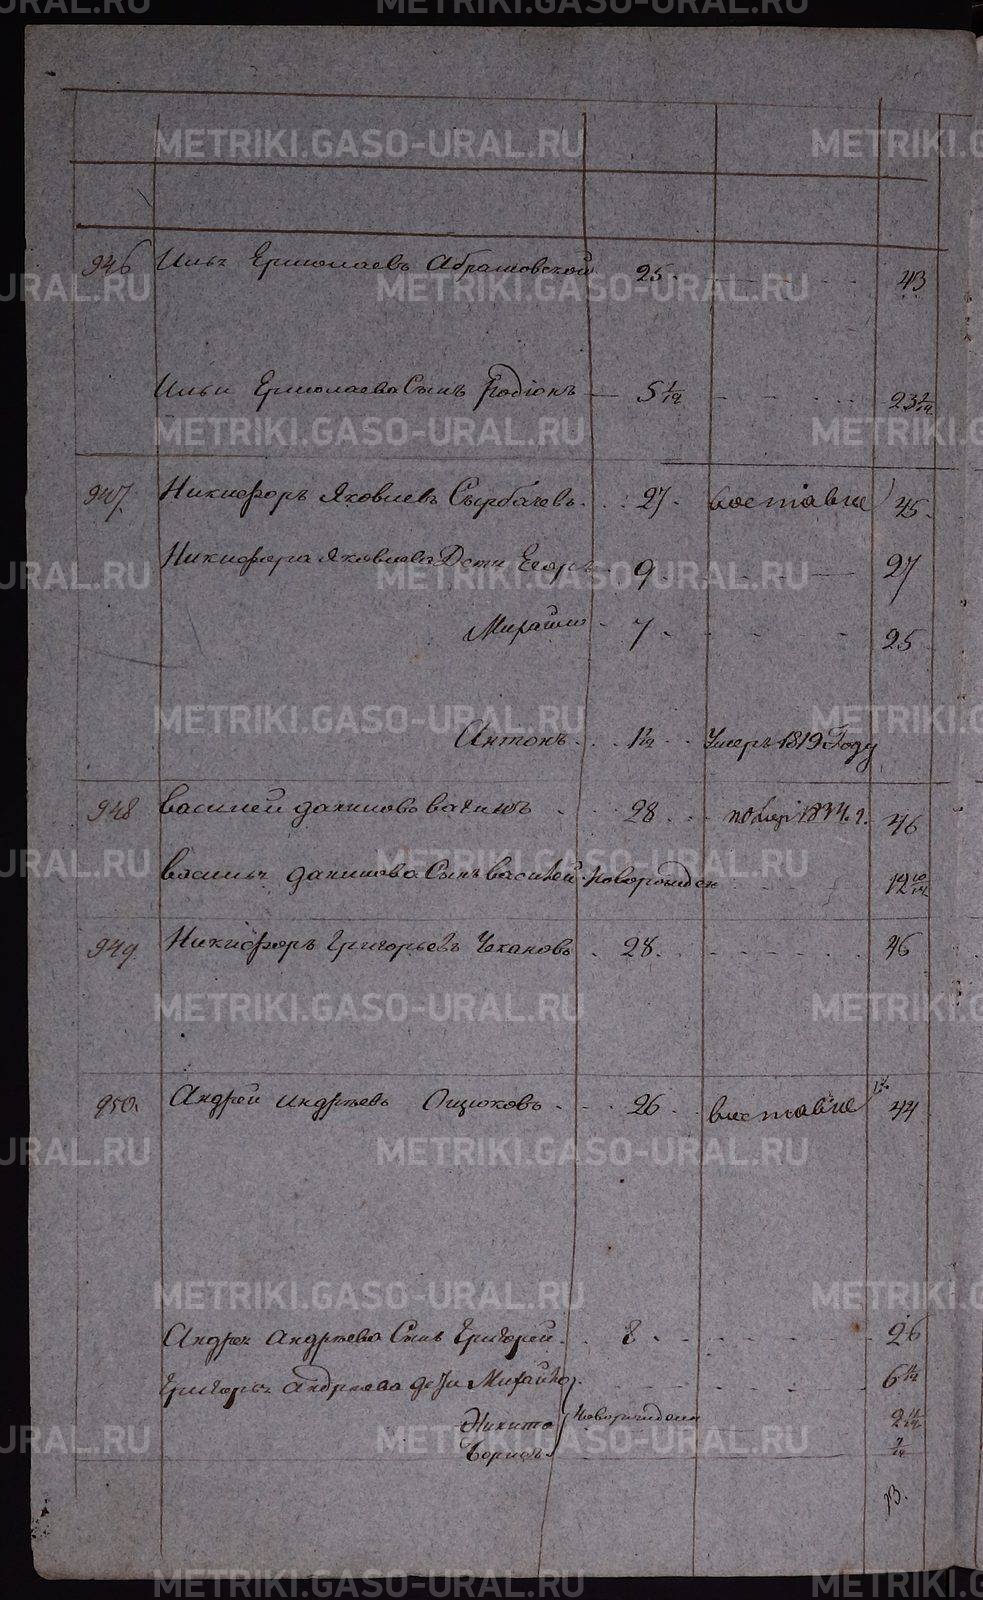 946 Илья Ермолаевъ Абрамовской 25 43
Ильи Ермолаева Сынъ Родіонъ 5 1/12 23 1/12
947. Никифоръ Яковлевъ Сырбачевъ 27 45
Никифора Яковлева Дети Егоръ 9 27
Михайло 7 25
Антонъ 1 1/12 Умеръ 1819 Году
948 Василей Даниловъ Вагинъ 28 1834. г. 46
Василья Данилова Сынъ Василей новорожден 12 10/12
949. Никифоръ Григорьевъ Чекановъ 28 46
950. Андрей Андреевъ 26 44
Андрея Андреева Сынъ Григорей 8 26
Григорья Андреева дети Михайло 6
Никита новорождены 2
Борисъ 7/12
13.
METRIKI.GASO-URAL.RU